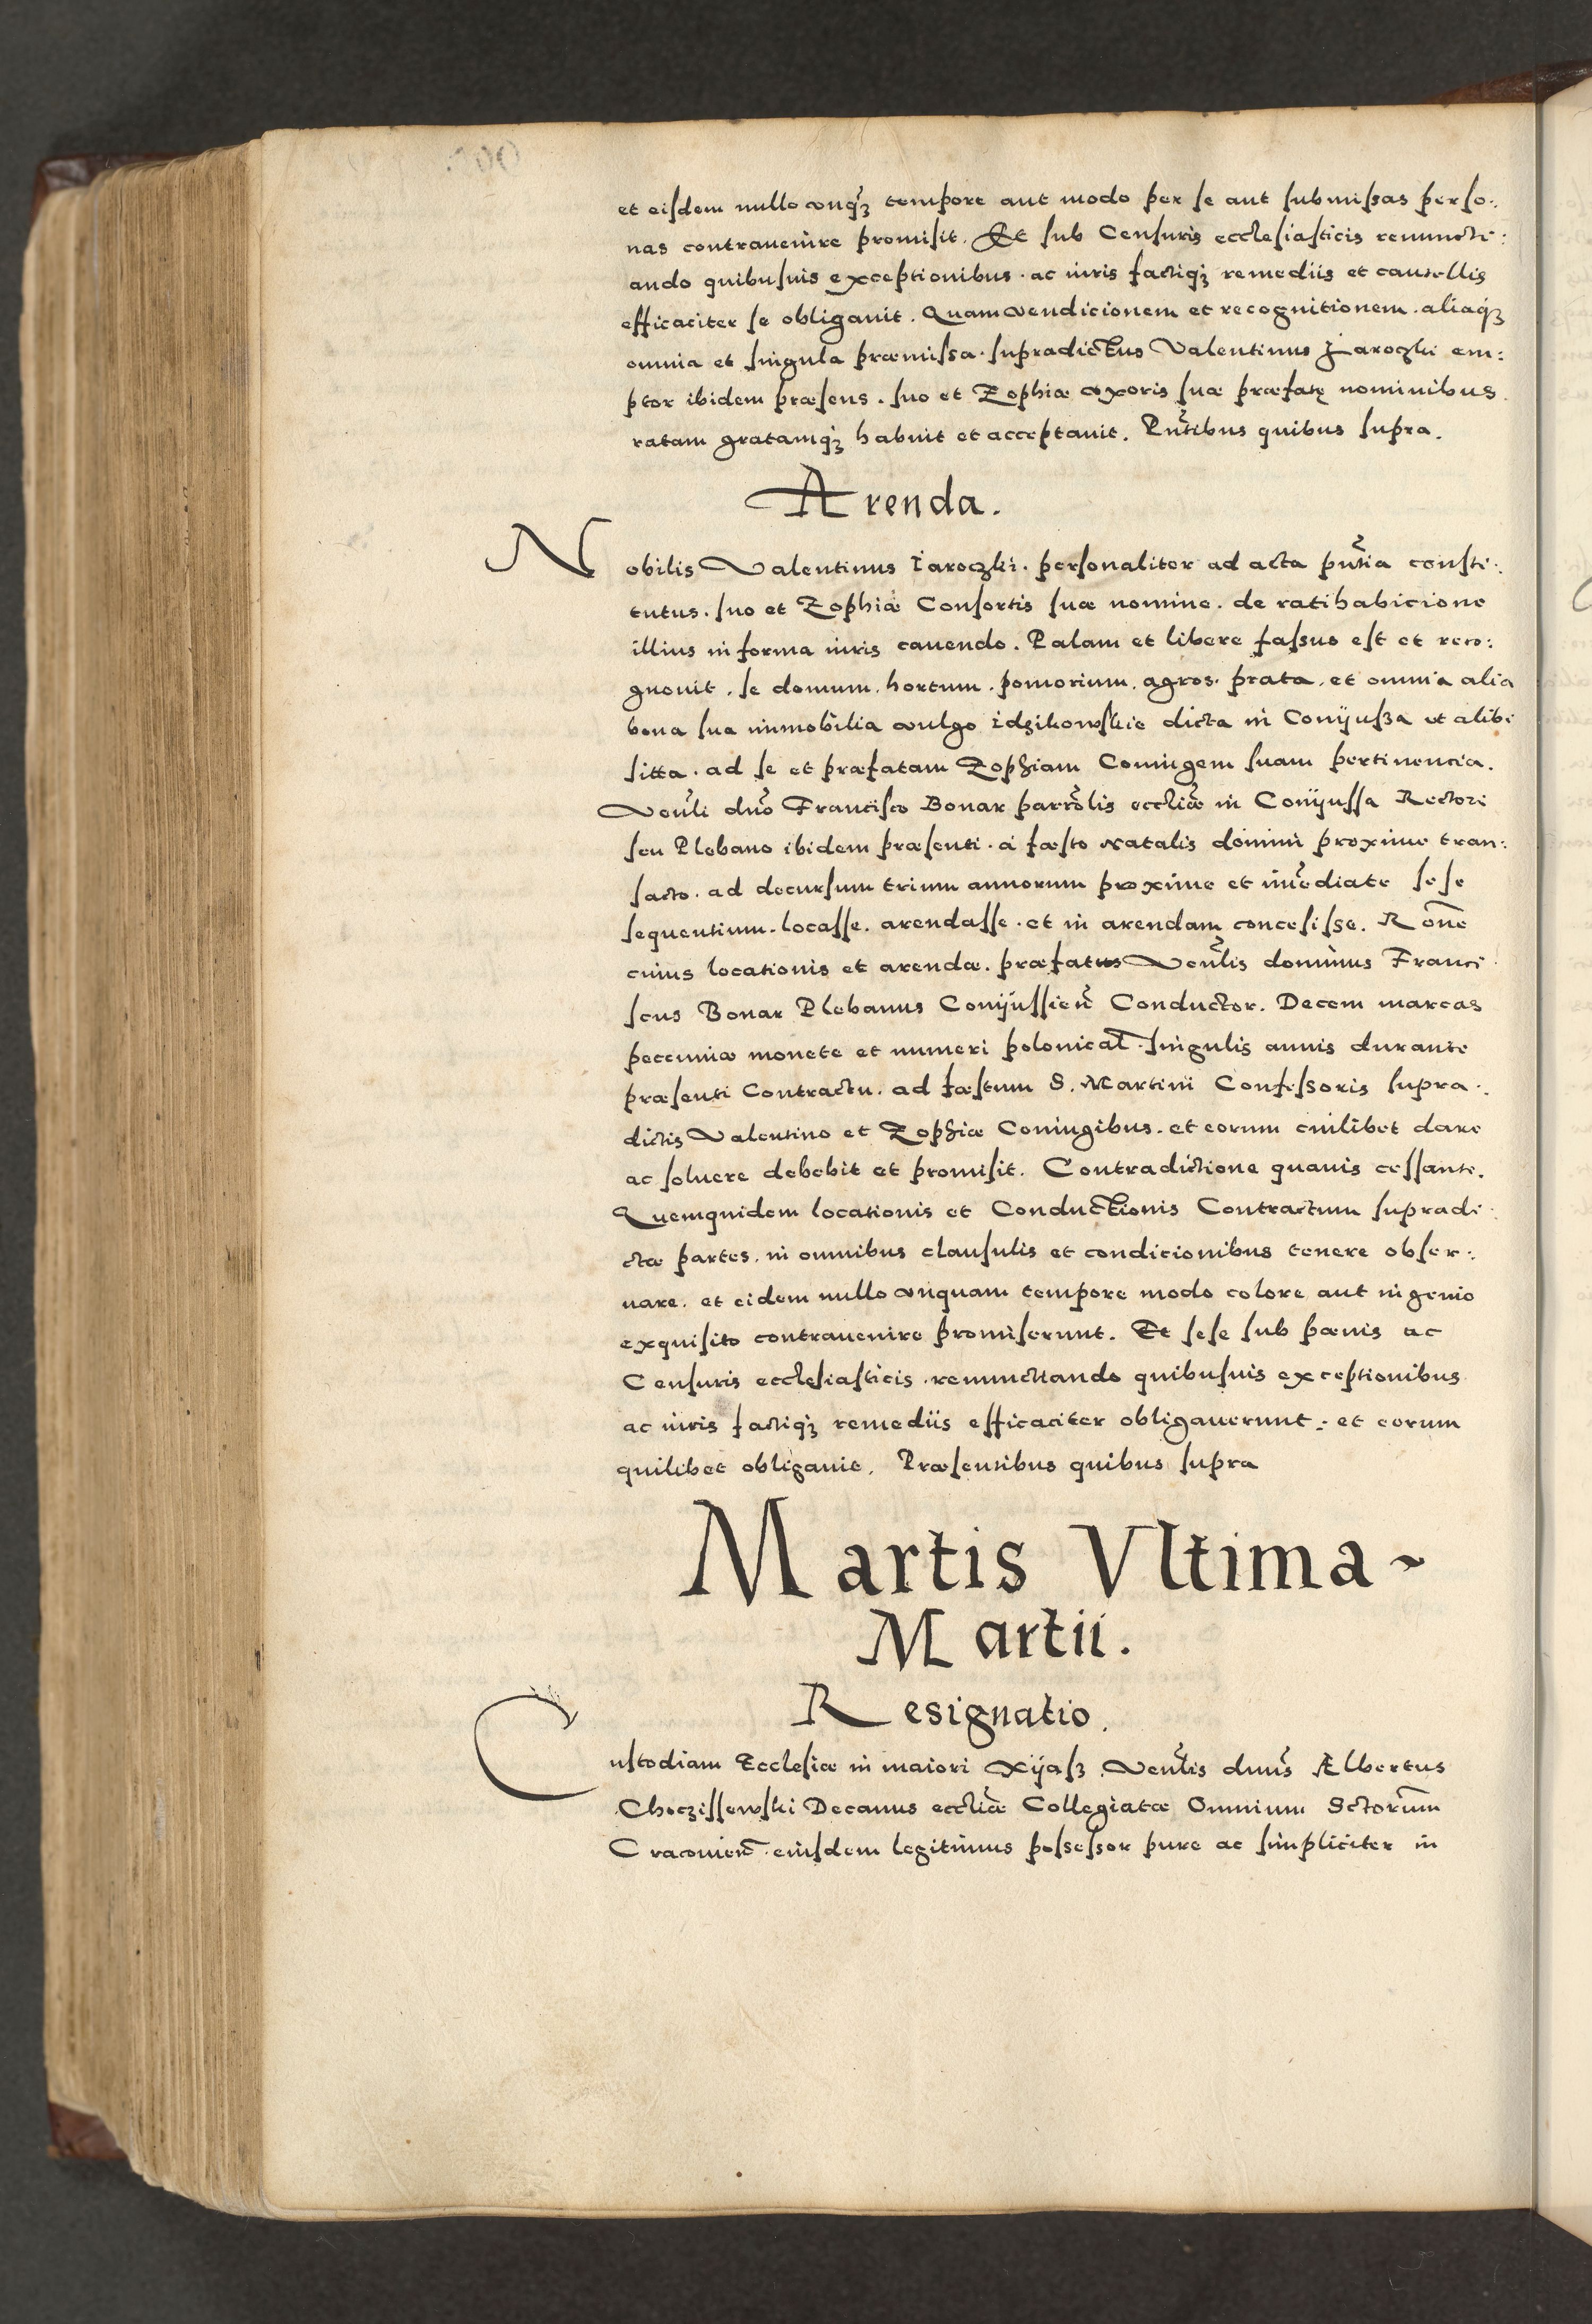 et eisdem nullo vnq̃ꝫ tempore aut modo per se aut submissas perso:
nas contrauenire promisit. Et sub Censuris ecclesiasticis renuncti:
ando quibusuis exceptionibus. ac iuris factiqꝫ remediis et cautellis
efficaciter se obligauit. Quam vendicionem et recognitionem. aliaqꝫ
omnia et singula præmissa. supradictus Valentinus Jaroczki em:
ptor ibidem præsens. suo et Zophiæ vxoris suæ præfatę nominibus
ratam gratamqꝫ habuit et acceptauit. Pñtibus quibus supra.
Arenda.
Nobilis Valentinus Iaroczki. personaliter ad acta pñtia consti:
tutus. suo et Zophiæ Consortis suæ nomine. de ratihabicione
illius in forma iuris cauendo. Palam et libere fassus est et reco:
gnouit. se domum. hortum. pomorium. agros. prata. et omnia alia
bona sua immobilia vulgo idzikowskie dicta in Conijusza et alibi
sitta. ad se et præfatam Zophiam Coniugem suam pertinencia.
Veñli dño Francisco Bonar parrõlis eccliæ in Conijussa Rectori
seu Plebano ibidem præsenti. a fæsto Natalis domini proxime tran:
sacto. ad decursum trium annorum proxime et im̃ediate sese
sequentium. locasse. arendasse. et in arendam concesisse. Rone
cuius locationis et arendæ. præfatus Veñlis dominus Franci
scus Bonar Plebanus Conijussieñ Conductor. Decem marcas
peccuniæ monete et numeri polonical̃. singulis annis durante
præsenti Contractu. ad fæstum S. Martini Confessoris supra:
dictis Valentino et Zophiæ Coniugibus. et eorum cuilibet dare
ac soluere debebit et promisit. Contradictione quauis cessante.
Quemquidem locationis et Conductionis Contractum supradi:
ctæ partes. in omnibus clausulis et condicionibus tenere obser:
uare. et eidem nullo vnquam tempore modo colore aut ingenio
exquisito contrauenire promiserunt. Et sese sub pænis ac
Censuris ecclesiasticis. renunctiando quibusuis exceptionibus
ac iuris factiqꝫ remediis efficaciter obligauerunt: et eorum
quilibet obligauit. Præsentibus quibus supra
Martis Vltima
Martii.
Resignatio.
Custodiam Ecclesiæ in maiori Xijasz. Veñlis dnus Albertus
Choczissewski Decanus eccliæ Collegiatæ Omnium Sctorum
Cracouieñ. eiusdem legitimus possessor pure ac simpliciter in